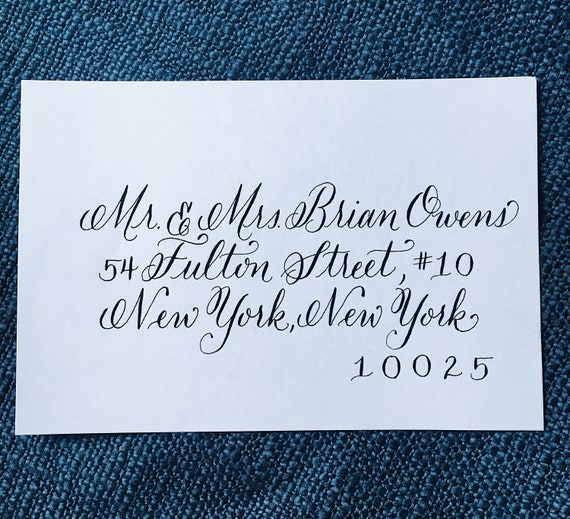 Mr. & Mrs. Brian Owens
54 Fulton Street, #10
New York, New York
10025